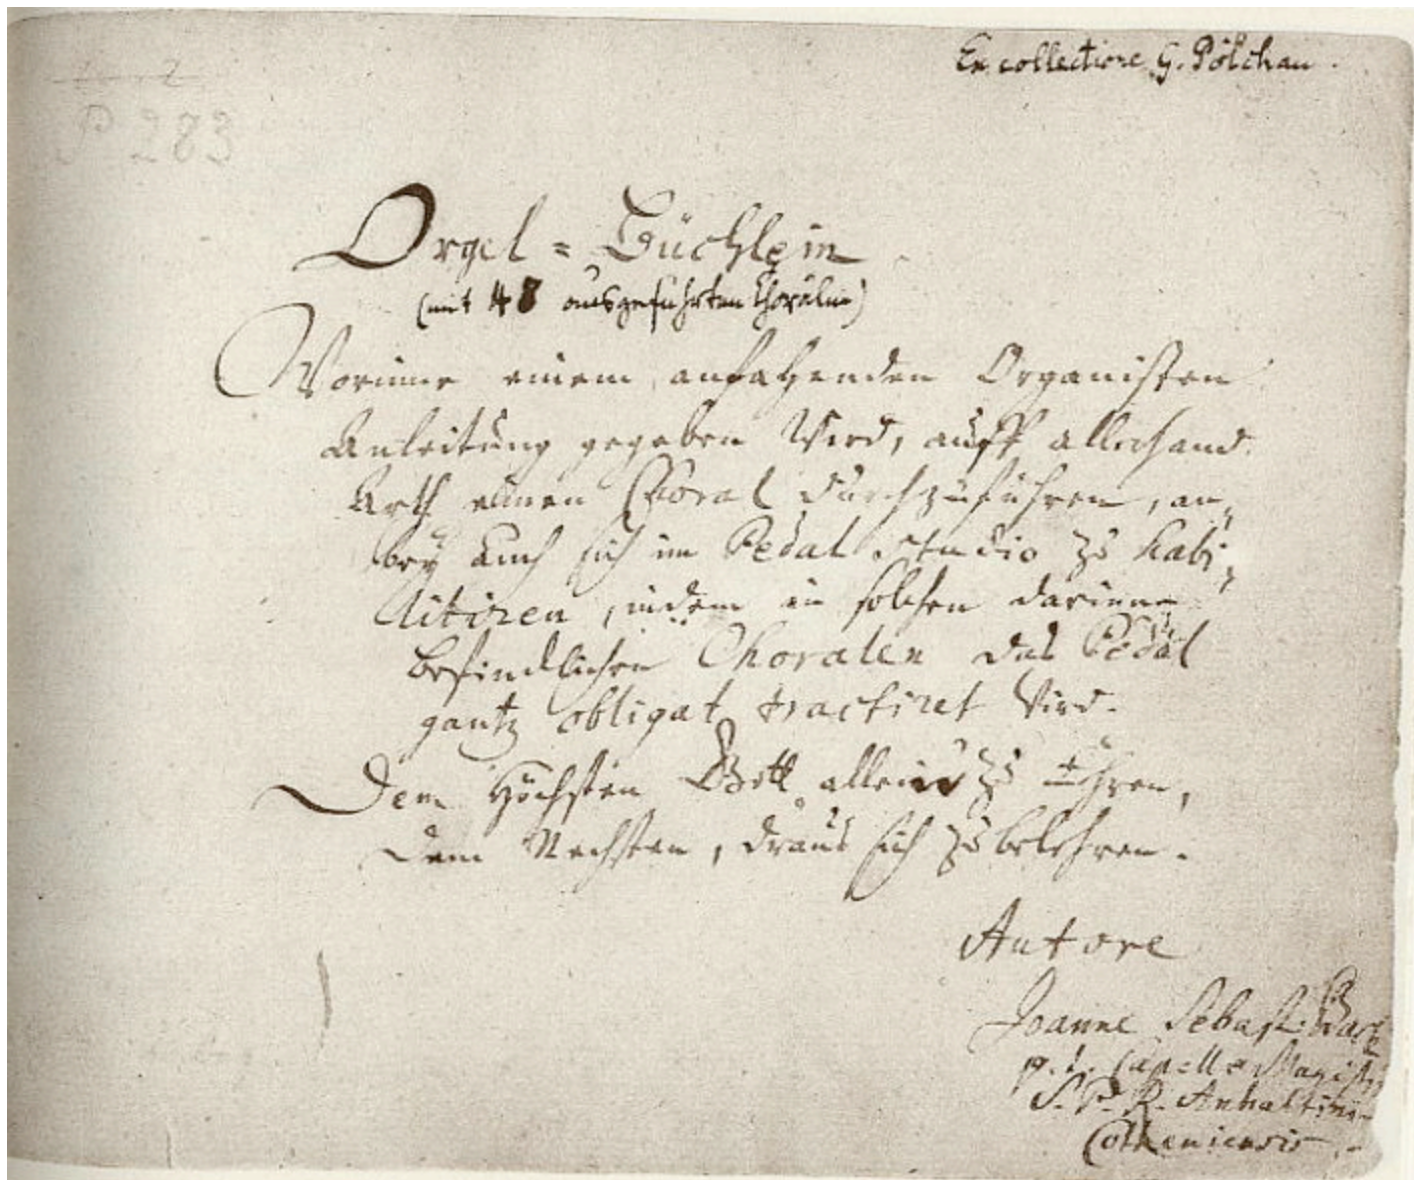 Ex collectione G. Pölchau.
P 283
Orgel = Büchlein
(mit 48 ausgeführten Chorälen)
Worinne einem anfahenden Organisten
Anleitung gegeben wird, auff allerhand
Arth einen Choral durchzuführen, an-
bey auch sich im Pedal studio zu habi-
litiren, indem in solchen darinne
befindlichen Choralen das Pedal
gantz obligat tractiret wird.
Dem Höchsten Gott allein zu Ehren,
Dem Nechsten, draus sich zu belehren.
Autore
Joanne Sebast. Bach
p. t. Capellæ Magistri
S. P. R. Anhaltini-
Cotheniensis.